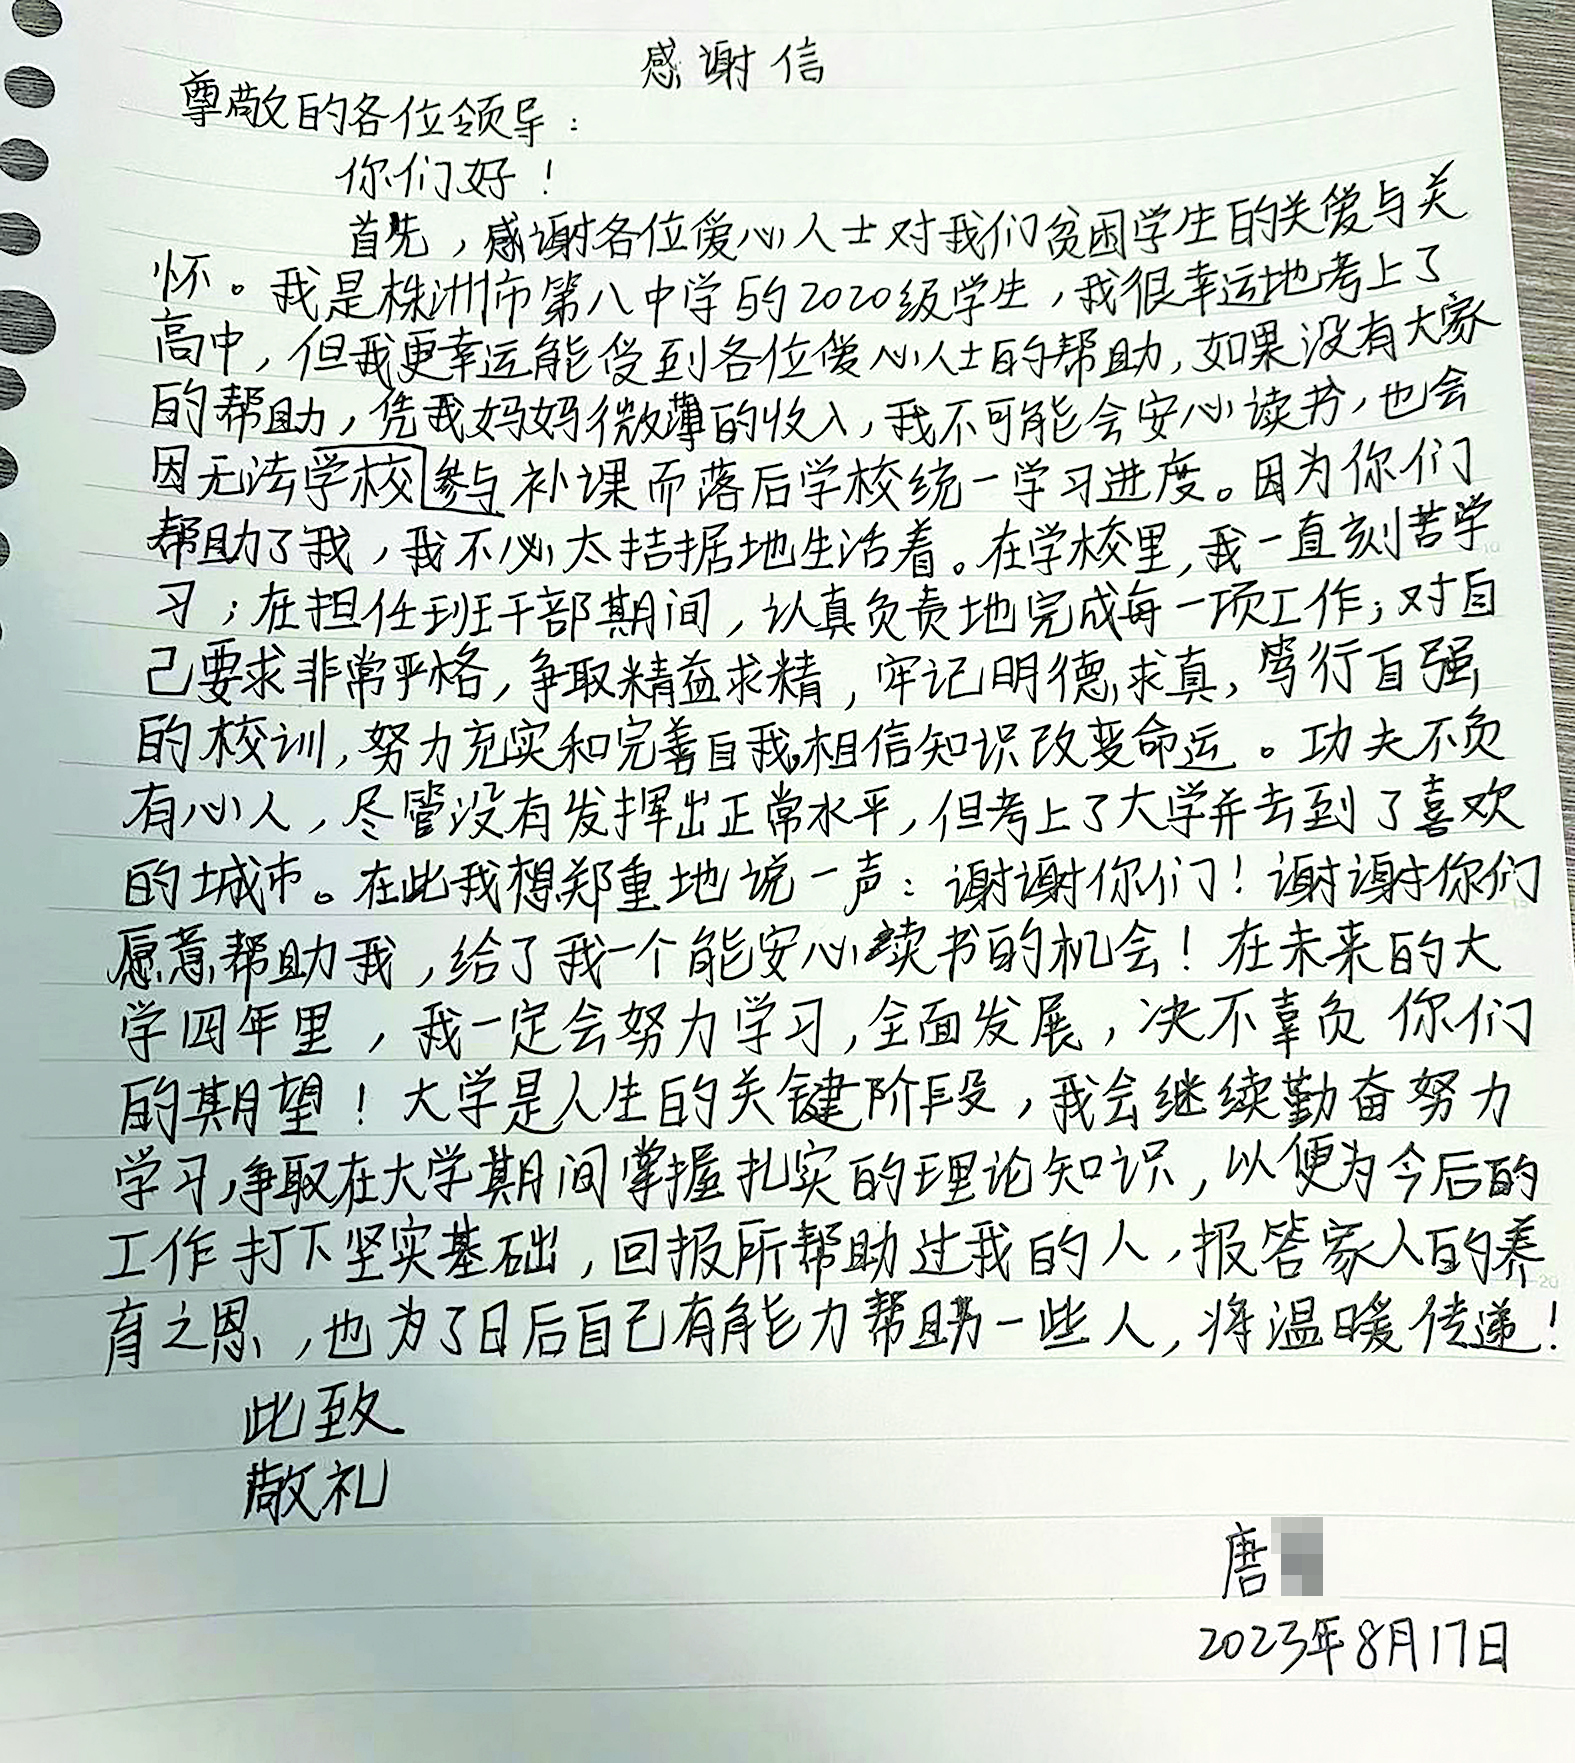 感谢信
尊敬的各位领导：
你们好！
首先，感谢各位爱心人士对我们贫困学生的关爱与关
怀。我是株洲市第八中学的2020级学生，我很幸运地考上了
高中，但我更幸运能受到各位爱心人士的帮助，如果没有大家
的帮助，凭我妈妈微薄的收入，我不可能会安心读书，也会
因无法学校参与补课而落后学校统一学习进度。因为你们
帮助了我，我不必太拮据地生活着。在学校里，我一直刻苦学
习；在担任班干部期间，认真负责地完成每一项工作；对自
己要求非常严格，争取精益求精，牢记明德求真，笃行自强
的校训，努力充实和完善自我，相信知识改变命运。功夫不负
有心人，尽管没有发挥出正常水平，但考上了大学并去到了喜欢
的城市。在此我想郑重地说一声：谢谢你们！谢谢你们
愿意帮助我，给了我一个能安心读书的机会！在未来的大
学四年里，我一定会努力学习，全面发展，决不辜负你们
的期望！大学是人生的关键阶段，我会继续勤奋努力
学习，争取在大学期间掌握扎实的理论知识，以便为今后的
工作打下坚实基础，回报所帮助过我的人，报答家人的养
育之恩，也为了日后自己有能力帮助一些人，将温暖传递！
此致
敬礼
唐
2023年8月17日
10
15
20